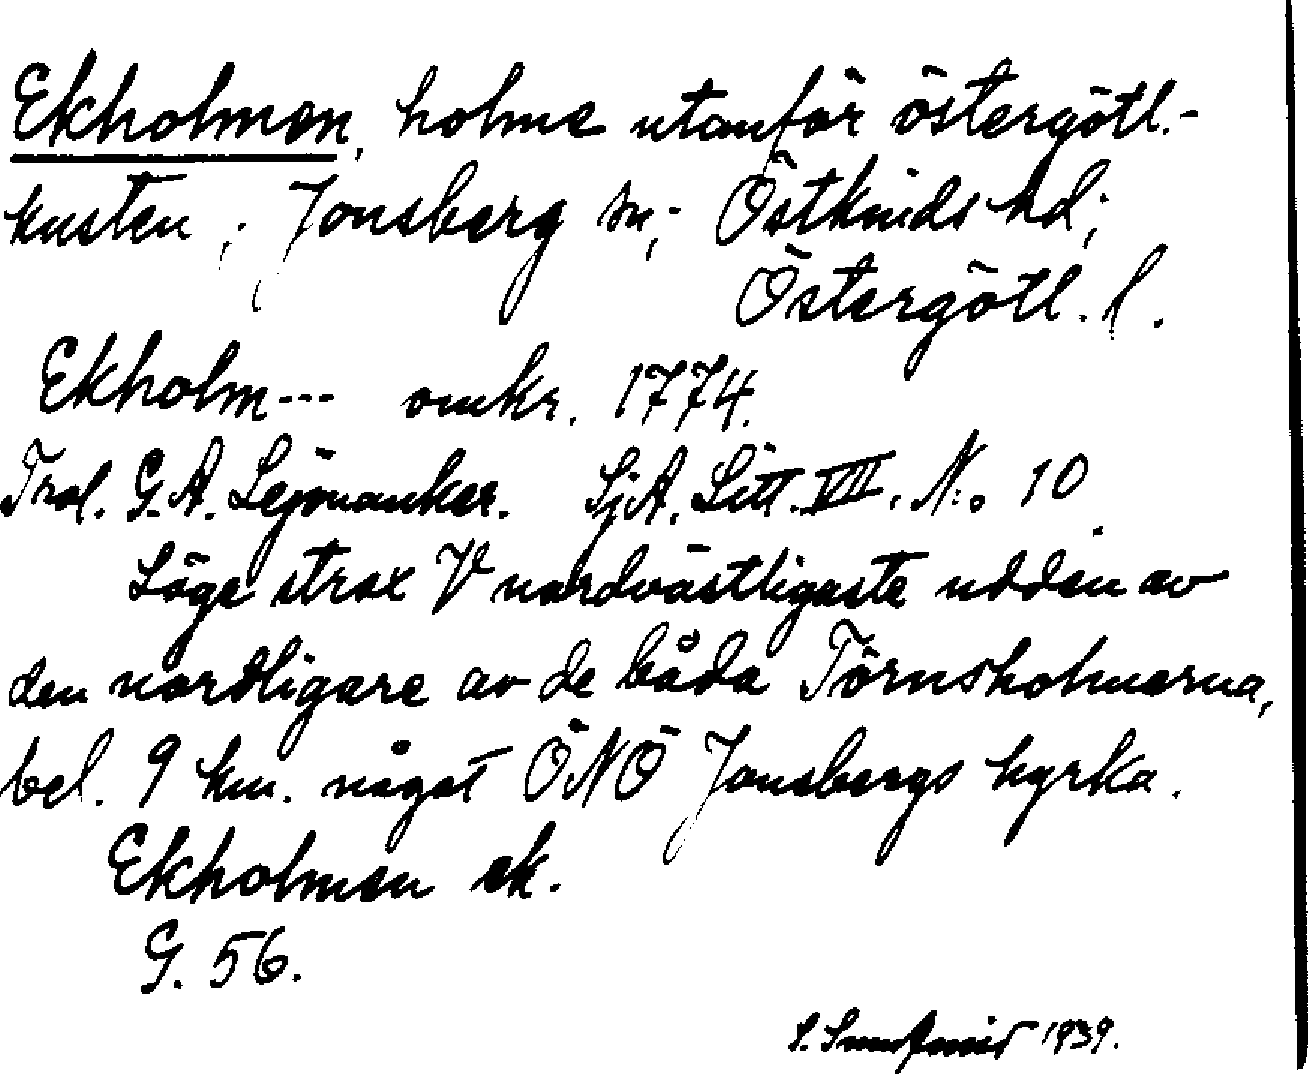 Ekholmen, holme utanför östergötl.-
kusten; Jonsberg sn; Östkinds hd;
Östergötl. l.
Ekholm--- omkr. 1774.
Trol. G. A. Lejonanker. SjA. Litt. VIII. N:o 10.
Läge strax V nordvästligaste udden av
den nordligare av de båda Törnsholmarna,
bel. 9 km. något ÖNÖ Jonsbergs kyrka.
Ekholmen ek.
G. 56.
S. 1939.